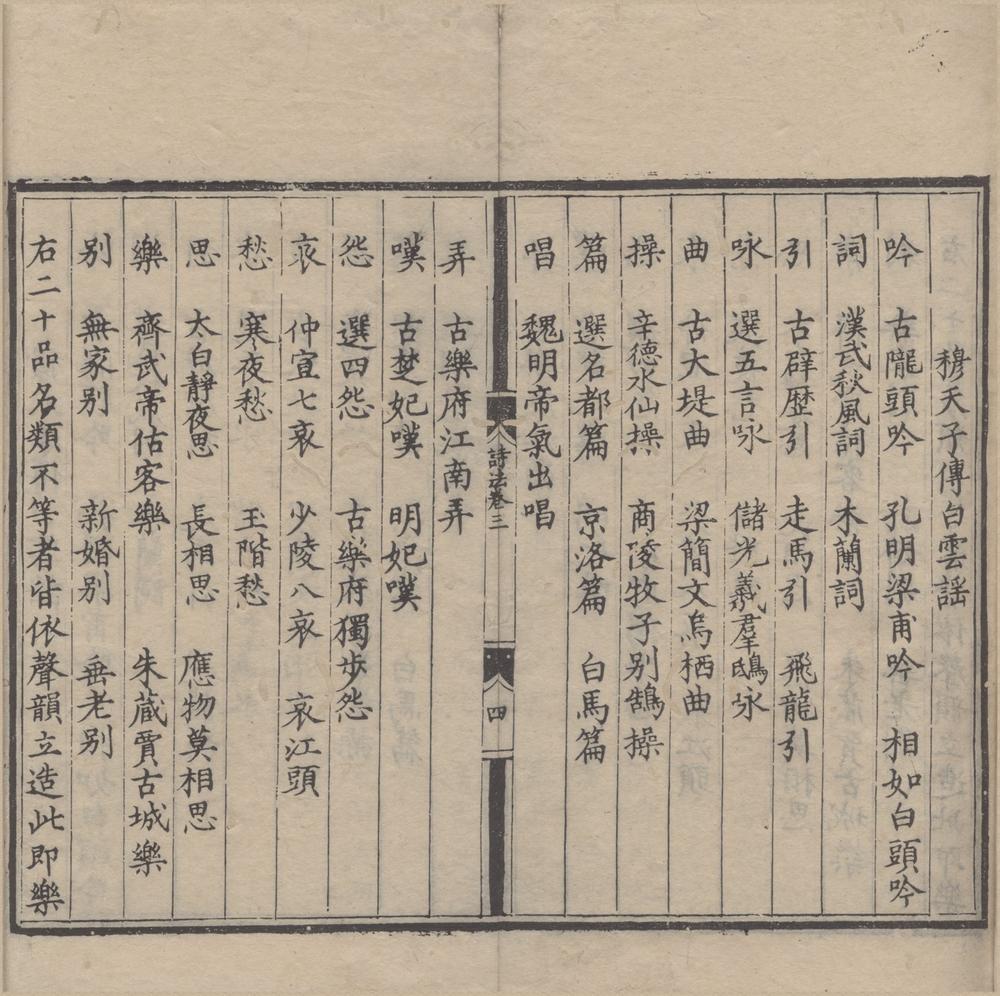 穆天子傳白雲謡
吟　古隴頭吟　孔明梁甫吟　相如白頭吟
詞　漢武秋風詞　木蘭詞
引　古辟歷引　走馬引　飛龍引
咏　選五言咏　儲光羲羣鴟咏
曲　古大堤曲　梁簡文烏栖曲
操　辛德水仙操　商陵牧子别鵠操
篇　選名都篇　京洛篇　白馬篇
唱　魏明帝氣出唱
詩法卷三　四
弄　古樂府江南弄
嘆　古楚妃嘆　明妃嘆
怨　選四怨　古樂府獨步怨
哀　仲宣七哀　少陵八哀　哀江頭
愁　寒夜愁　玉階愁
思　太白靜夜思　長相思　應物莫相思
樂　齊武帝估客樂　朱藏賈古城樂
别　無家别　新婚别　垂老别
右二十品名類不等者皆依聲韻立造此即樂